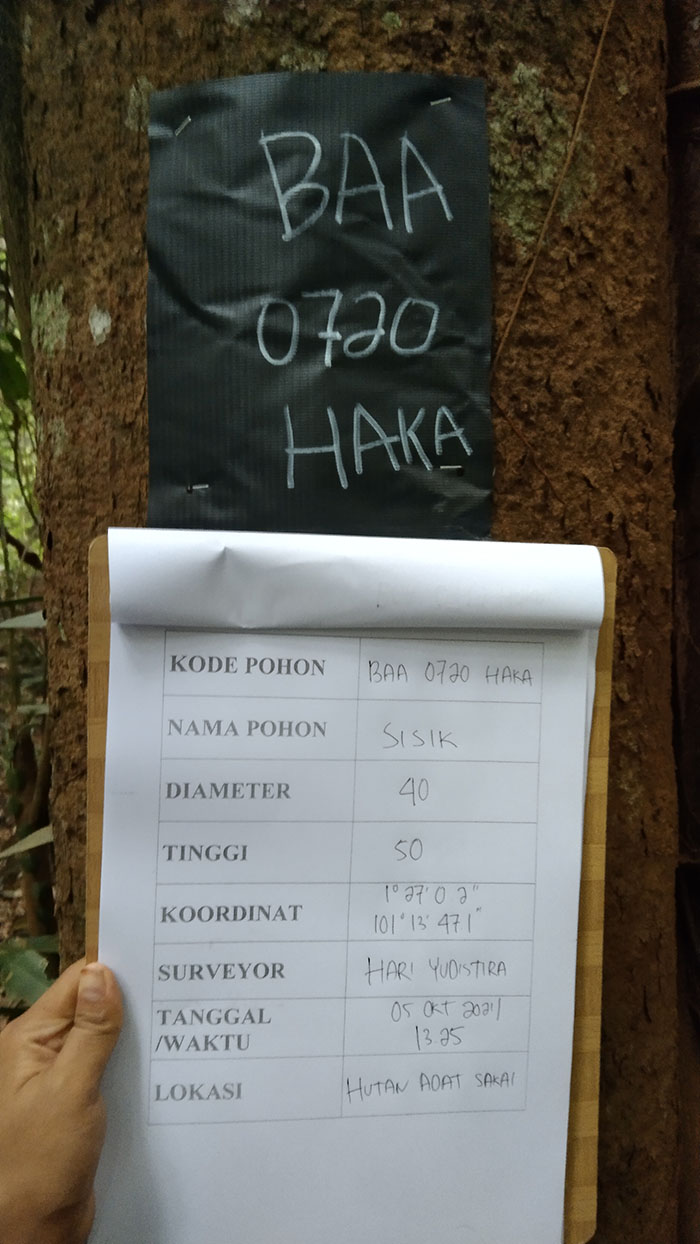 BAA
0720
HAKA
KODE POHON BAA 0720 HAKA
NAMA POHON SISIK
DIAMETER 40
TINGGI 50
KOORDINAT 1° 27' 0 2"
101° 13' 47 1"
SURVEYOR HARI YUDISTIRA
TANGGAL 05 OKT 2021/
/WAKTU 13.25
LOKASI HUTAN ADAT SAKAI